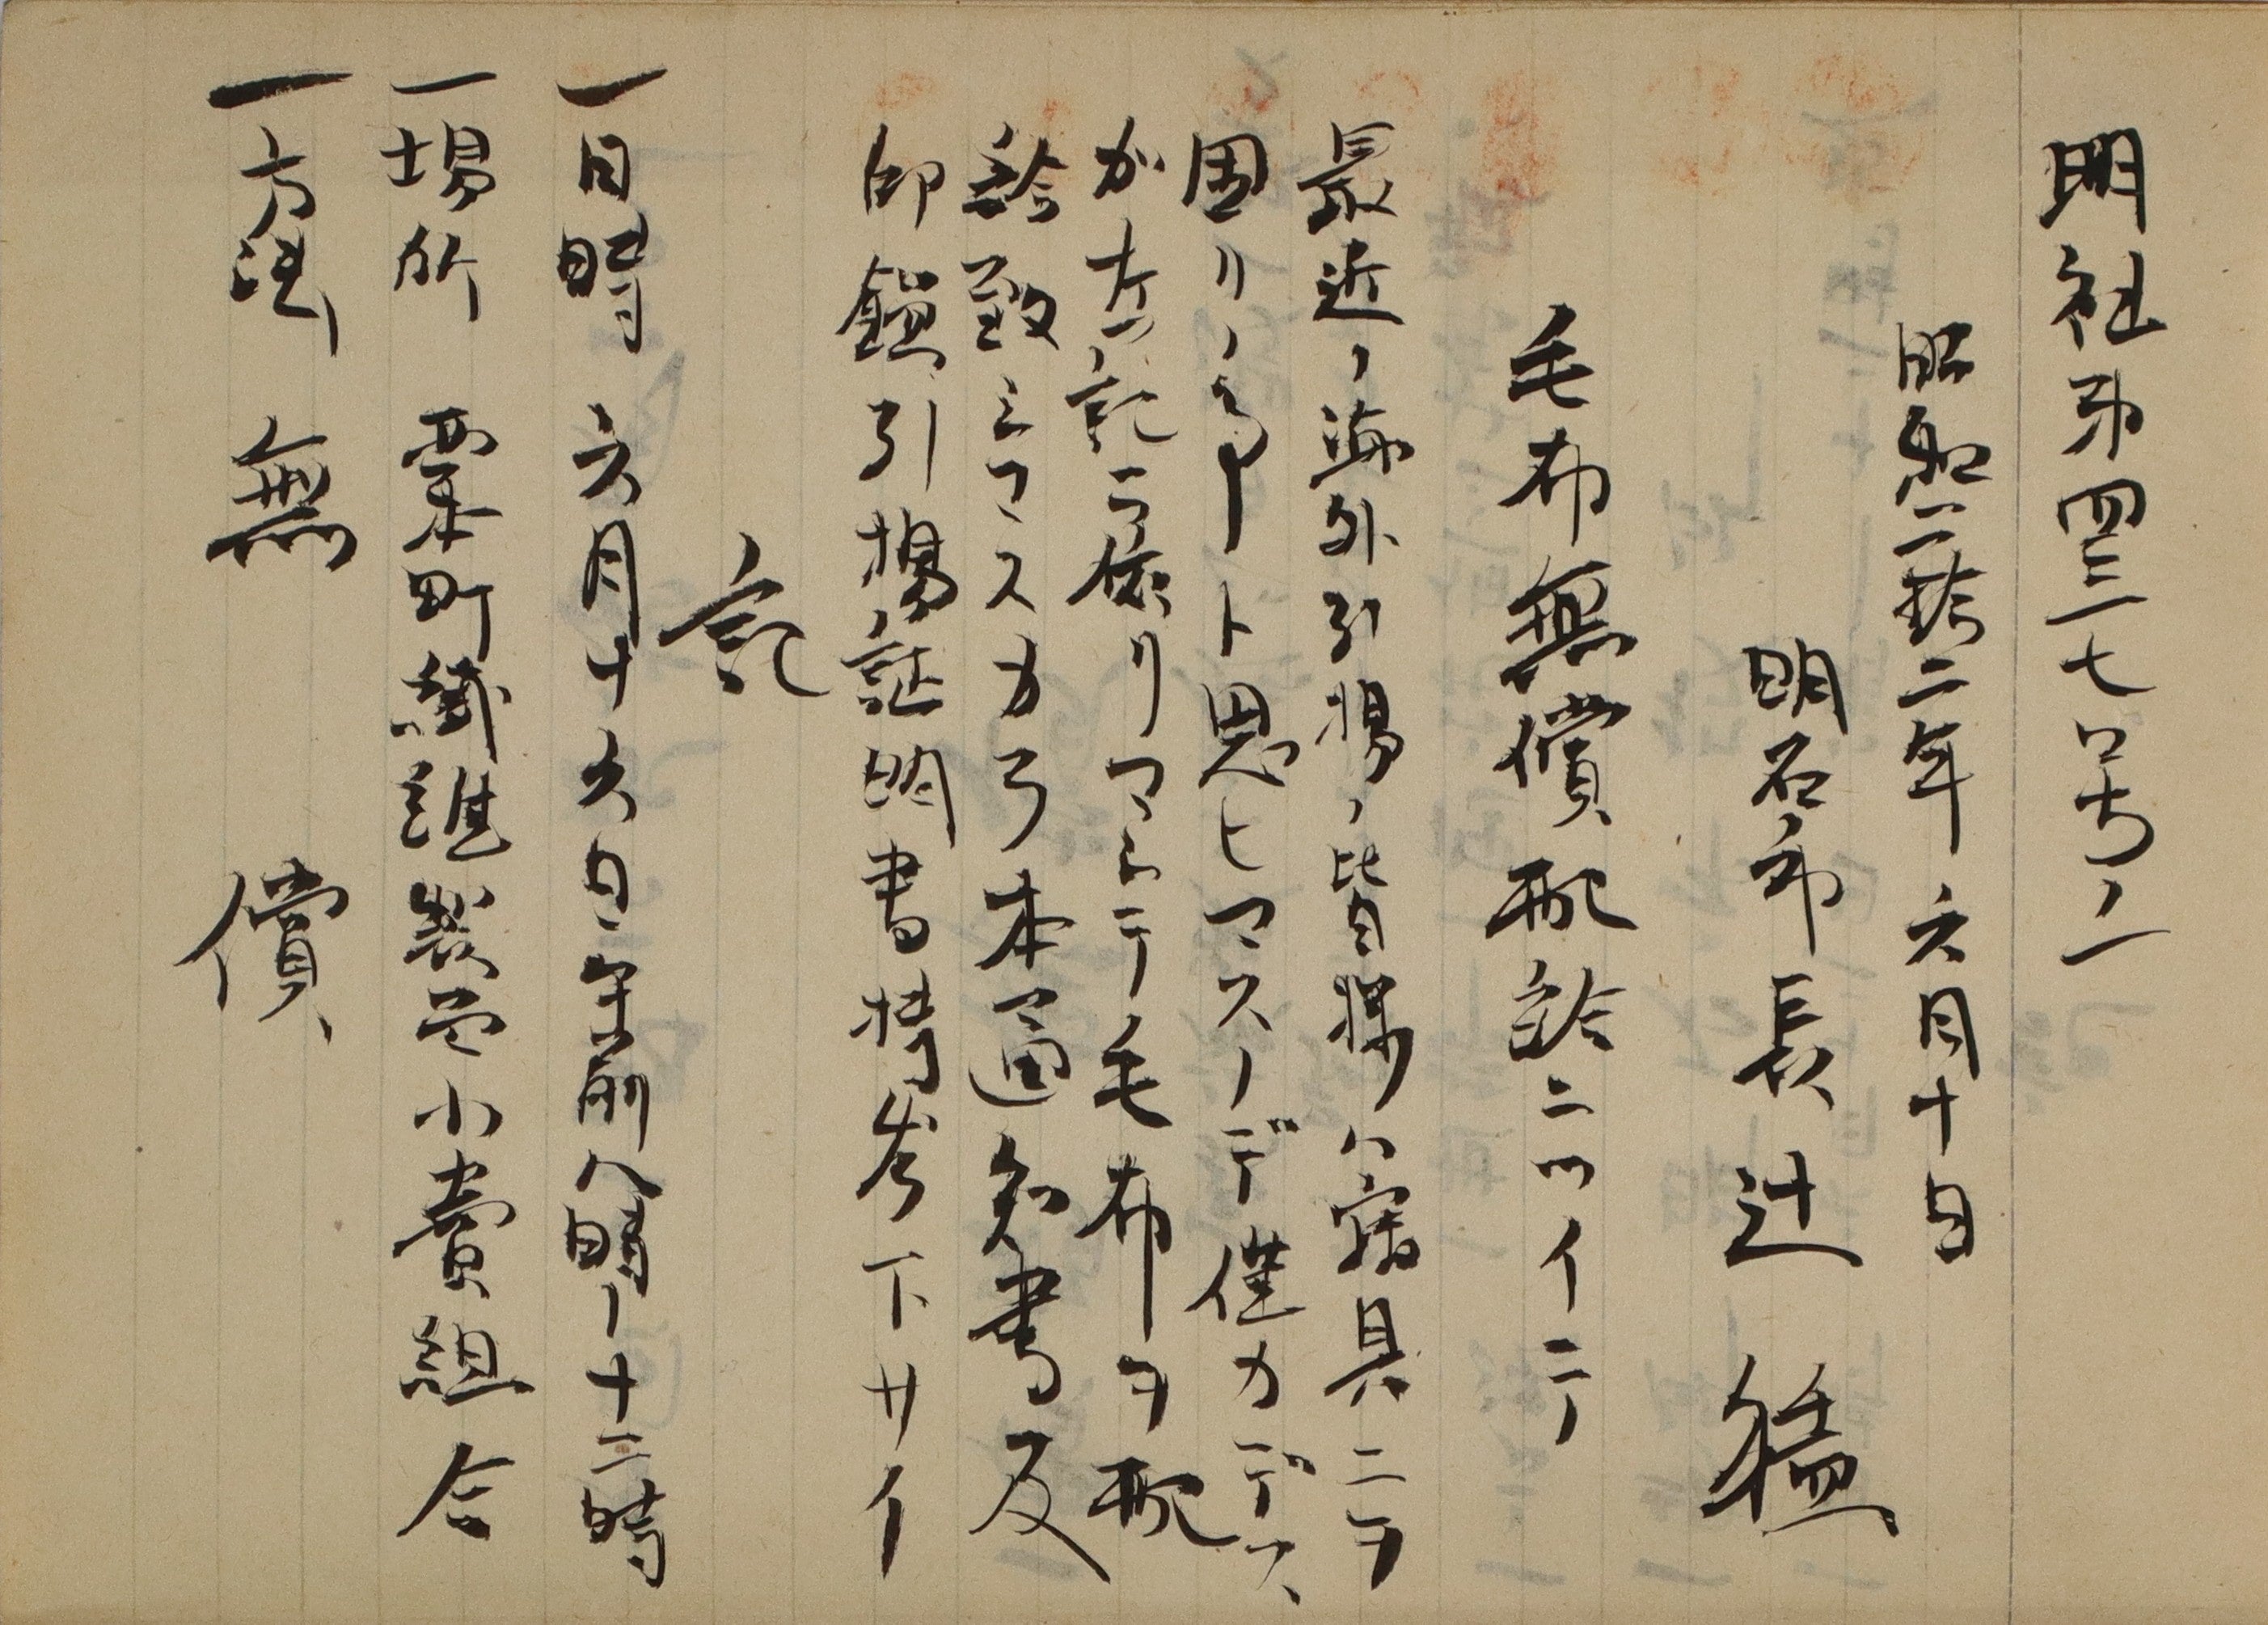 明社第四三七号ノ一
昭和二拾二年 六月十日
明石市長 辻 猛
毛布無償配給ニツイテ
最近ノ海外引揚ノ皆様ハ寝具ニヲ
困リノ事ト思ヒマスノデ僅カデス
が左ノ記ニ依リマシテ毛布ヲ配
給致シマスカラ本通知書及
印鑑引揚証明書持参下サイ
記
一日時 六月十六日午前八時ー十二時
一場所 東本町繊維製品小賣組合
一方法 無償